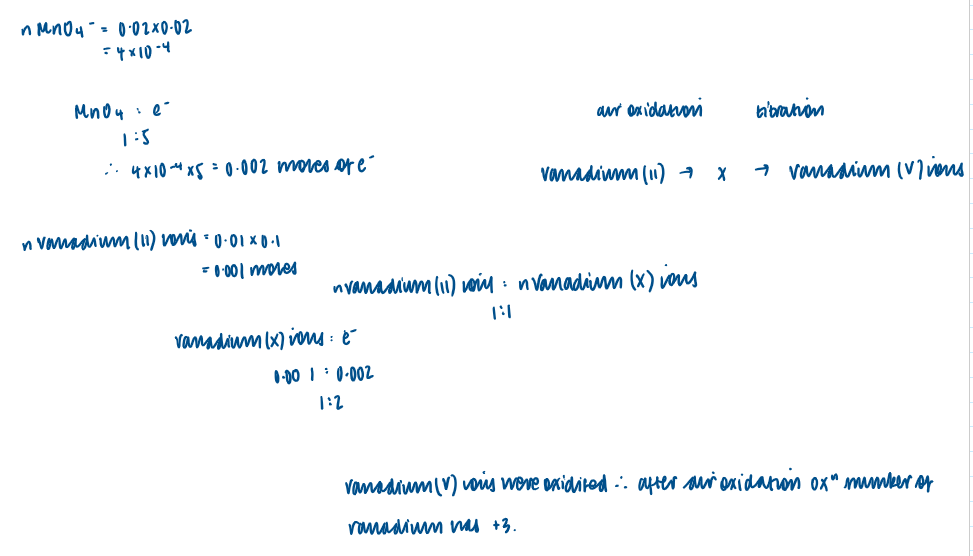 n MnO₄⁻ = 0.02×0.02
= 4×10⁻⁴
MnO₄ : e⁻
1:5
∴ 4×10⁻⁴×5 = 0.002 moles of e⁻
air oxidation titration
vanadium(II) → x → vanadium (V) ions
n vanadium(II) ions = 0.01×0.1
= 0.001 moles
n vanadium(II) ions : n vanadium (x) ions
1:1
vanadium(x) ions : e⁻
0.001 : 0.002
1:2
vanadium(V) ions were oxidised ∴ after air oxidation oxⁿ number of
vanadium was +3.